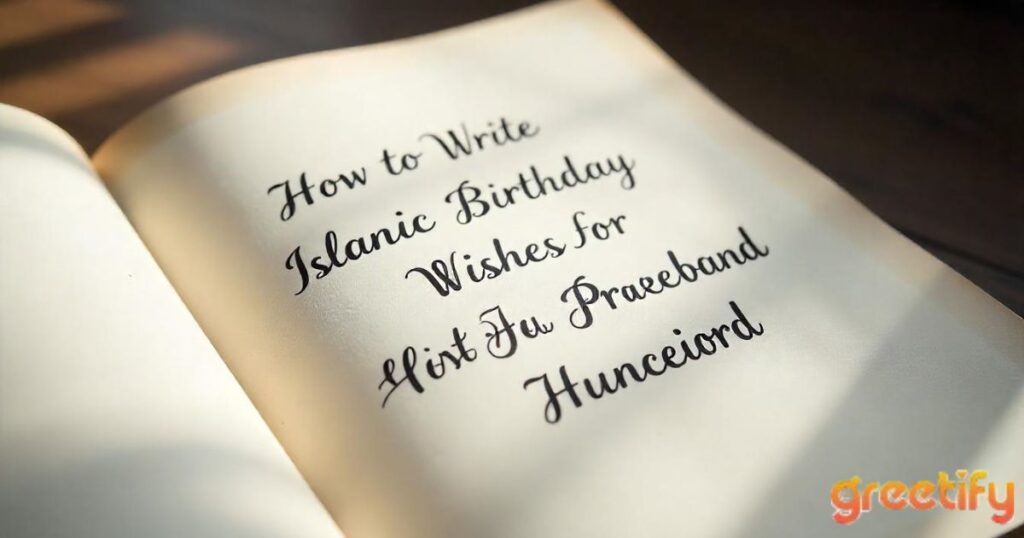 How to Write
Islanic Birthday
Wishes for
Praeeband
Hunceiord
greetify